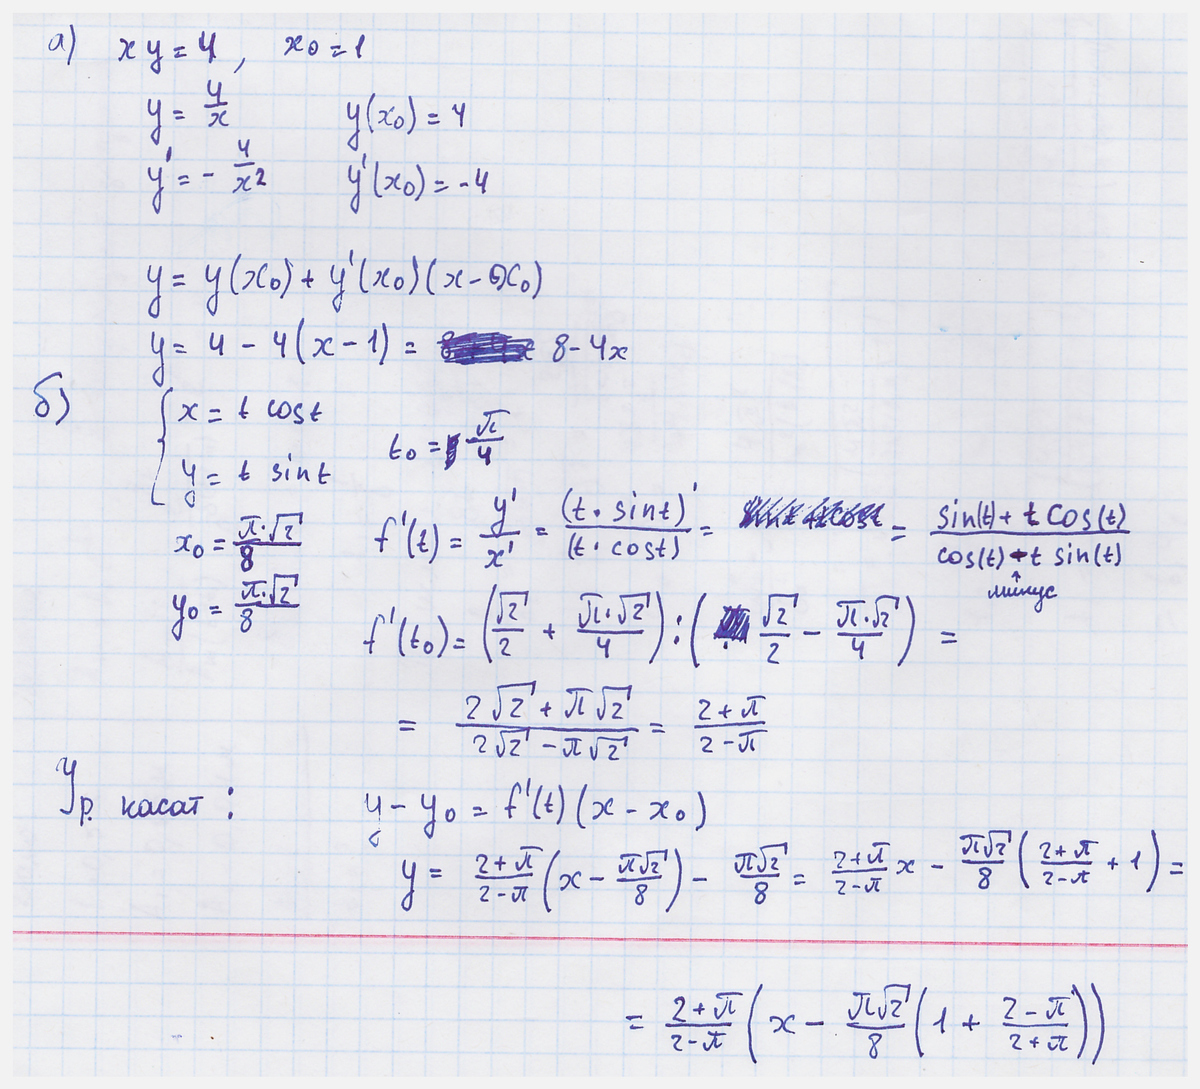 а) xy = 4, x₀ = 1
y = 4/x y(x₀) = 4
y' = - 4/x² y'(x₀) = -4
y = y(x₀) + y'(x₀)(x - x₀)
y = 4 - 4(x - 1) = 8 - 4x
б) { x = t cost
y = t sint
t₀ = π/4
x₀ = π·√2/8
y₀ = π·√2/8
f'(t) = y'/x' = (t · sint)'/(t · cost) = = (sin(t) + t cos(t))/(cos(t) - t sin(t))
↑
минус
f'(t₀) = (√2/2 + π·√2/4) : (√2/2 - π·√2/4) =
= (2√2 + π√2)/(2√2 - π√2) = (2 + π)/(2 - π)
Ур. касат: y - y₀ = f'(t)(x - x₀)
y = (2+π)/(2-π) (x - π√2/8) - π√2/8 = (2+π)/(2-π) x - π√2/8 ((2+π)/(2-π) + 1) =
= (2+π)/(2-π) (x - π√2/8 (1 + (2-π)/(2+π)))